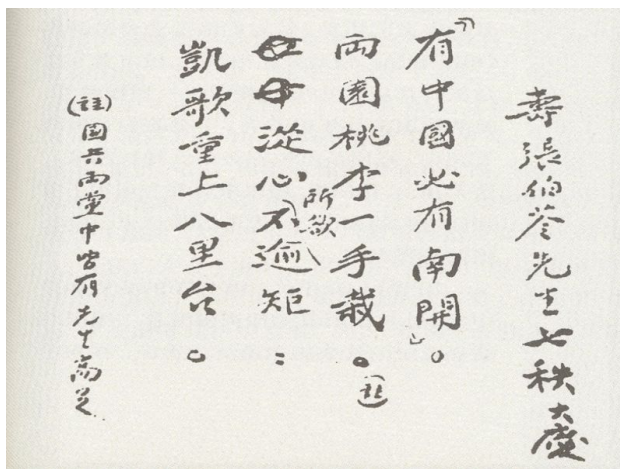 壽張伯苓先生七秩大慶
「有中國必有南開」。
兩園桃李一手栽。(註)
從心所欲不逾矩：
凱歌重上八里台。
(註)国共兩黨中皆有先生高足.